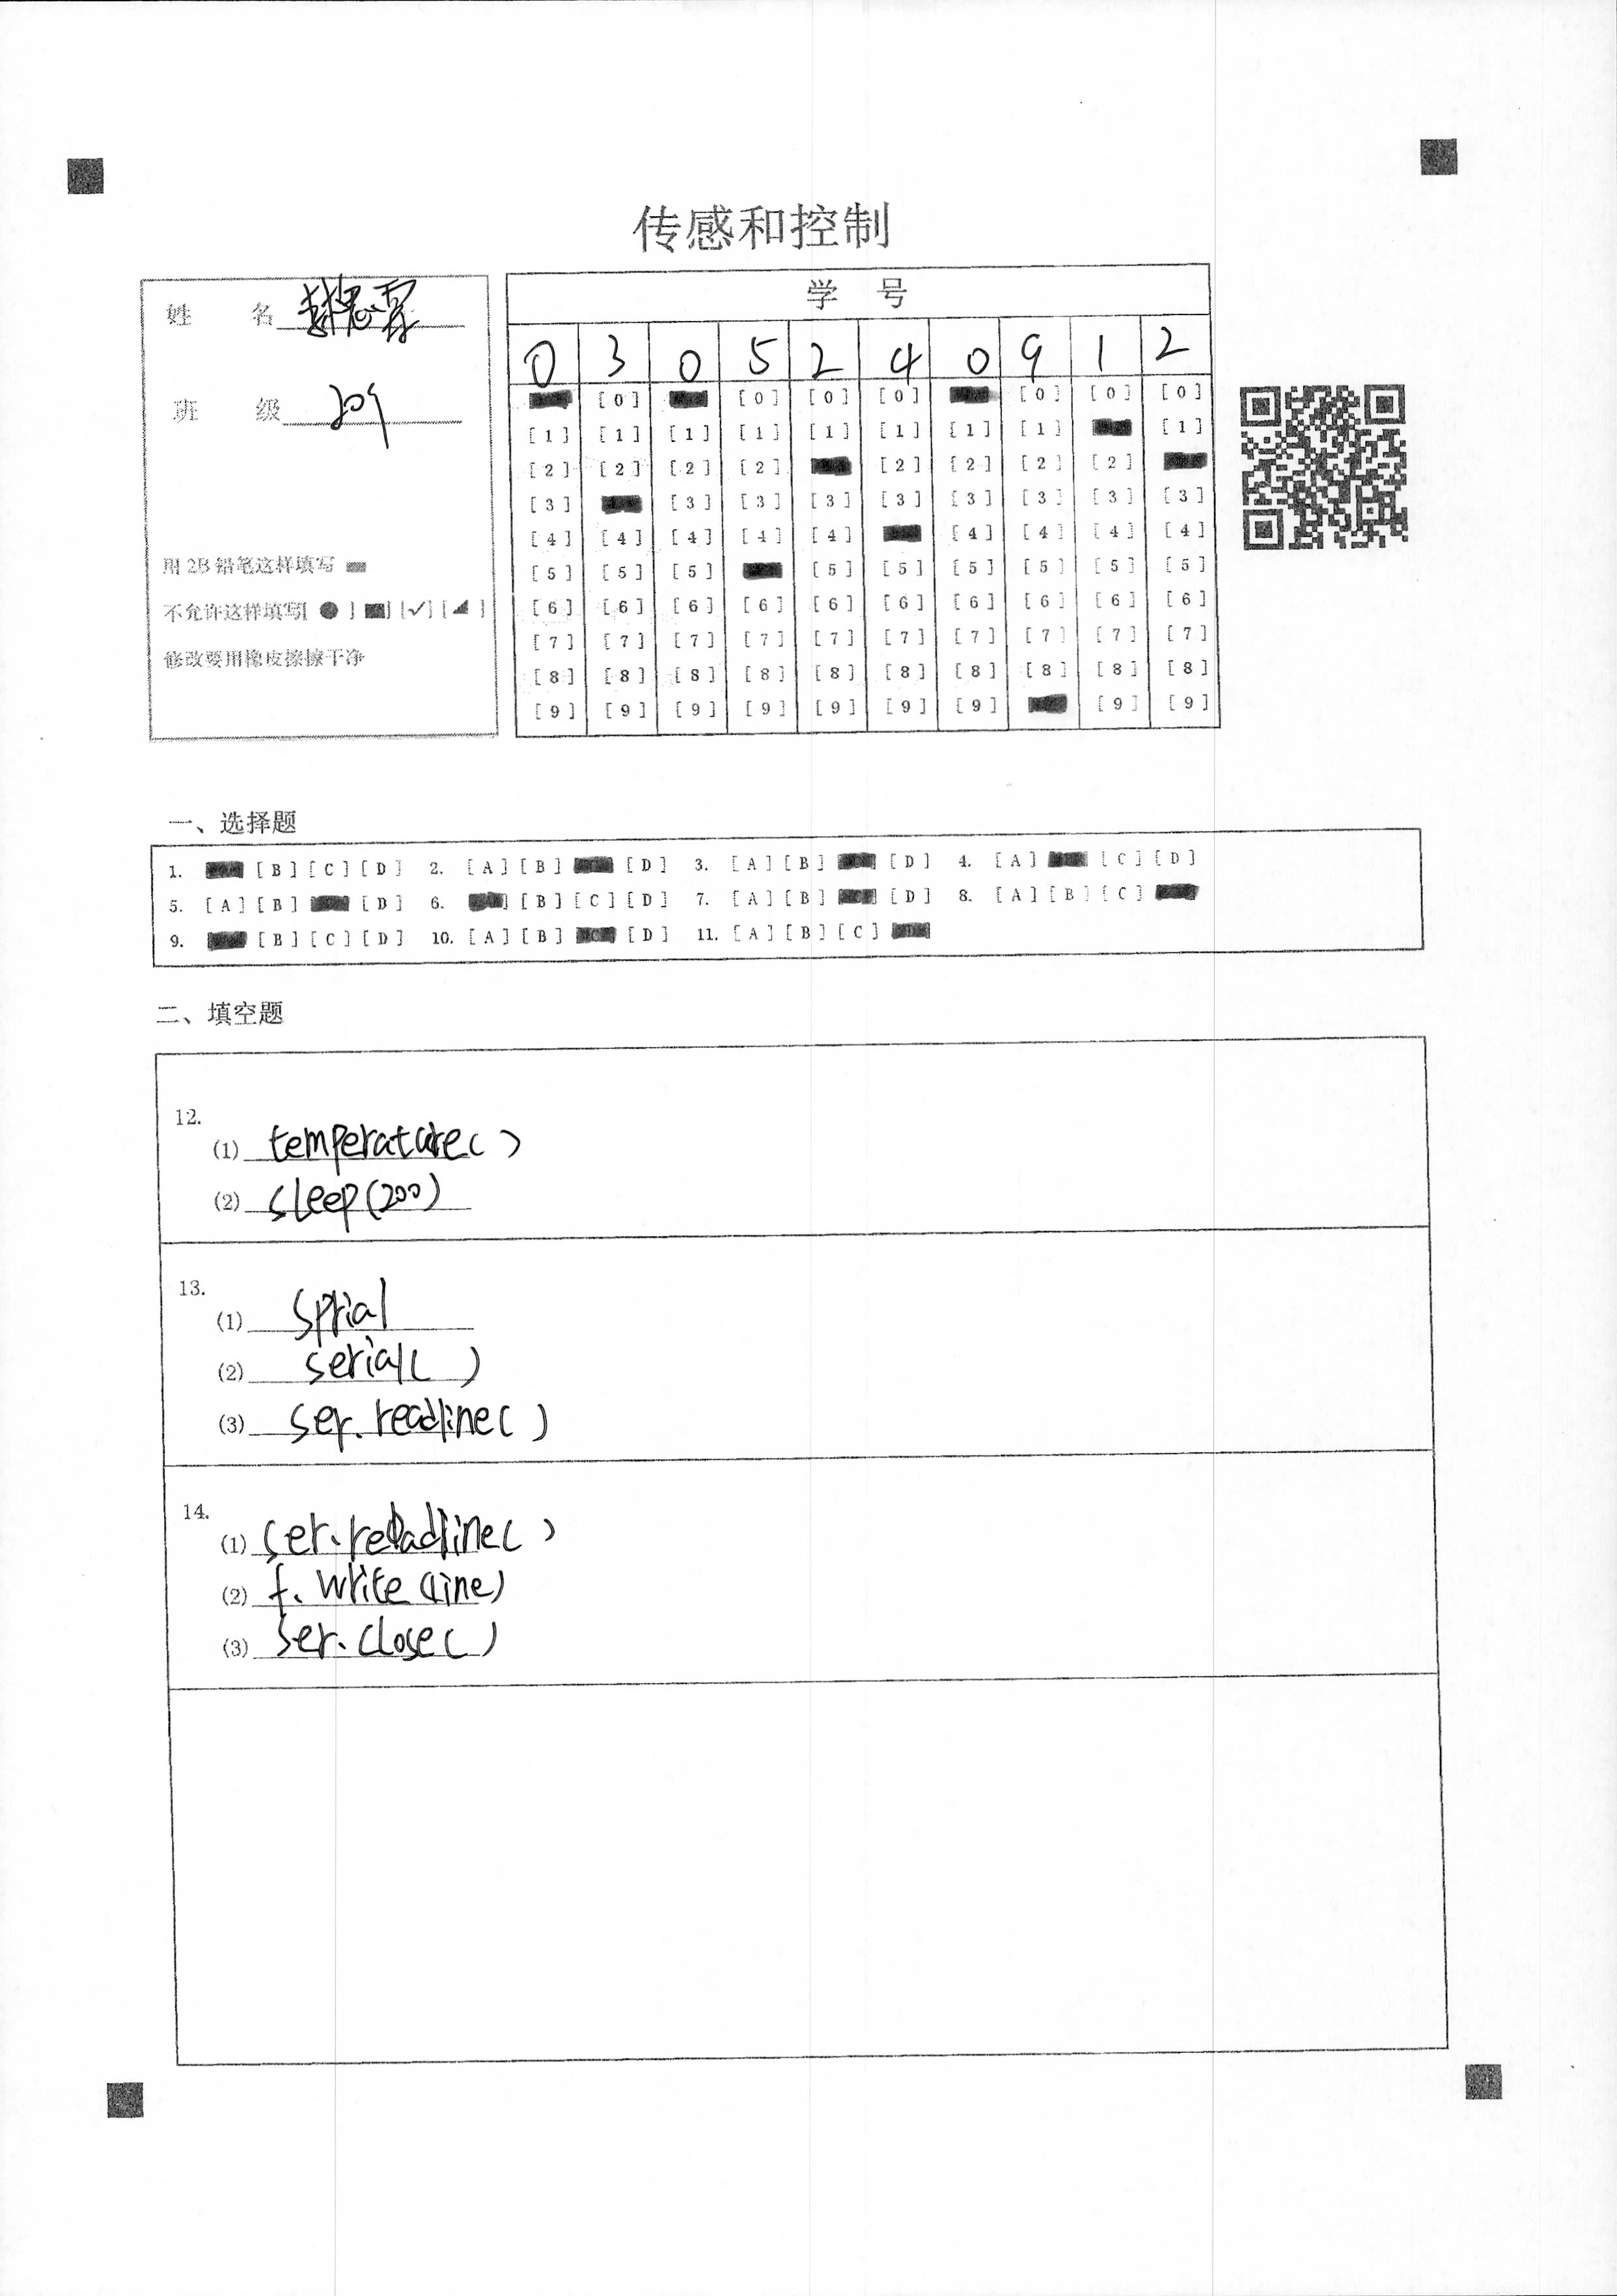 传感和控制
姓 名
班 级 209
用 2B 铅笔这样填写
不允许这样填写[ ● ] [■] [✓] [◢ ]
修改要用橡皮擦擦干净
学 号
0 3 0 5 2 4 0 9 1 2
[0] [0] [0] [0] [0] [0]
[1] [1] [1] [1] [1] [1] [1] [1] [1]
[2] [2] [2] [2] [2] [2] [2] [2]
[3] [3] [3] [3] [3] [3] [3] [3] [3]
[4] [4] [4] [4] [4] [4] [4] [4] [4]
[5] [5] [5] [5] [5] [5] [5] [5] [5]
[6] [6] [6] [6] [6] [6] [6] [6] [6] [6]
[7] [7] [7] [7] [7] [7] [7] [7] [7] [7]
[8] [8] [8] [8] [8] [8] [8] [8] [8] [8]
[9] [9] [9] [9] [9] [9] [9] [9] [9]
一、选择题
1. [B] [C] [D] 2. [A] [B] [D] 3. [A] [B] [D] 4. [A] [C] [D]
5. [A] [B] [D] 6. [B] [C] [D] 7. [A] [B] [D] 8. [A] [B] [C]
9. [B] [C] [D] 10. [A] [B] [D] 11. [A] [B] [C]
二、填空题
12.
(1) temperature( )
(2) sleep(200)
13.
(1) sprial
(2) serial( )
(3) ser.readline( )
14.
(1) ser.readline( )
(2) f.write(line)
(3) ser.close( )